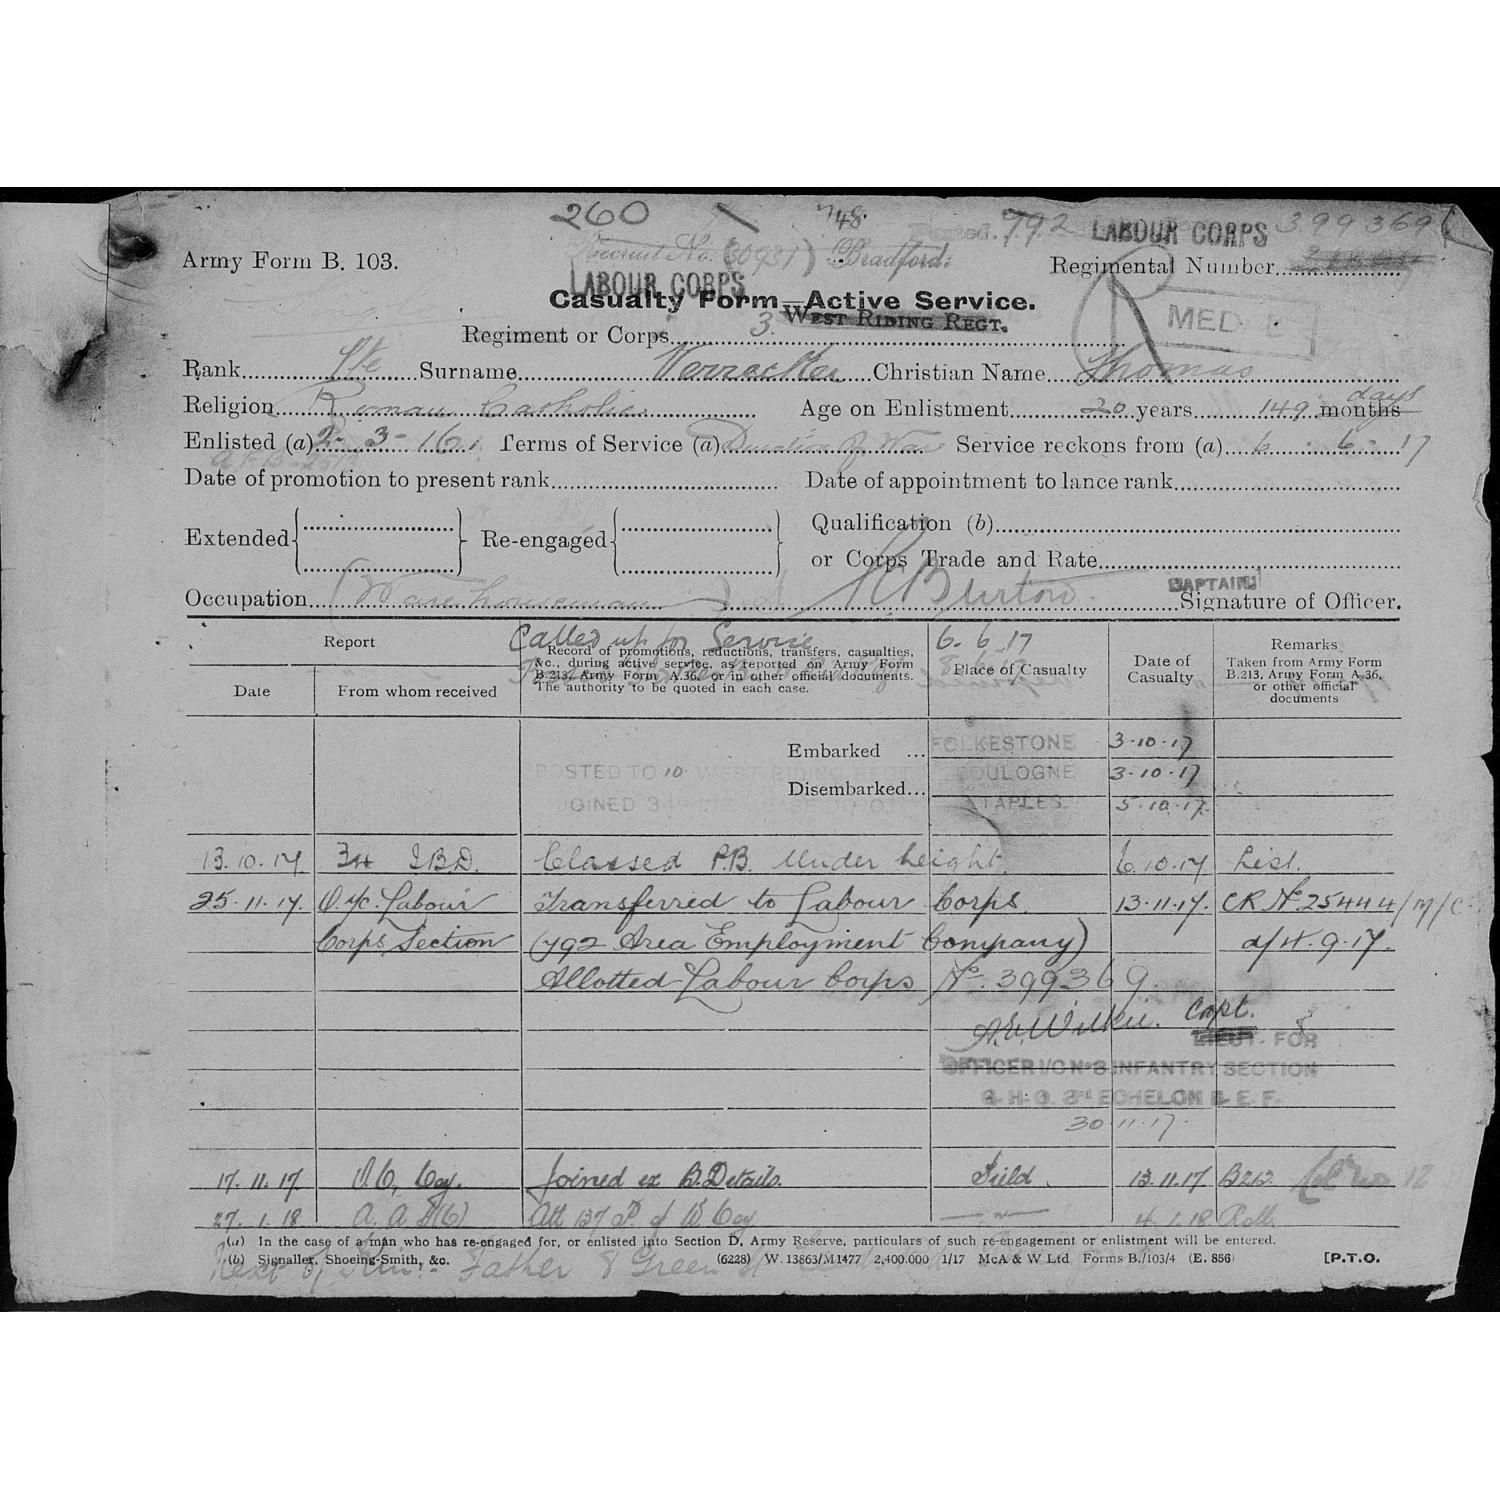 260 748. 792 LABOUR CORPS 399369
Army Form B. 103. Recruit No. (30931) Bradford. Regimental Number
LABOUR CORPS
Casualty Form—Active Service.
Regiment or Corps 3. WEST RIDING REGT. MED
Rank Pte Surname Christian Name Thomas
Religion Roman Catholic Age on Enlistment 20 years 149 months days
Enlisted (a) 2-3-16. Terms of Service (a) Duration of War Service reckons from (a) 6-6-17
Date of promotion to present rank Date of appointment to lance rank
Extended Re-engaged Qualification (b)
or Corps Trade and Rate
Occupation Warehouseman Burton CAPTAIN Signature of Officer.
Called up for Service 6.6.17
Report Record of promotions, reductions, transfers, casualties, &c., during active service, as reported on Army Form B.213, Army Form A.36, or in other official documents. The authority to be quoted in each case. Place of Casualty Date of Casualty Remarks Taken from Army Form B.213, Army Form A.36, or other official documents
Date From whom received
Embarked ... FOLKESTONE 3-10-17
POSTED TO 10 WEST RIDING REGT BOULOGNE 3-10-17
Disembarked...
JOINED 34 BASE DEPOT ETAPLES 5.10.17.
13.10.17 34 I.B.D. Classed P.B. Under height. 6.10.17 List.
25.11.17. O. i/c. Labour Transferred to Labour Corps. 13.11.17. CR No 25444/M/C.
Corps Section (792 Area Employment Company) d/14.9.17.
Allotted Labour Corps No. 399369.
A.E. Wilkie. Capt.
LIEUT. FOR
OFFICER I/C No 3 INFANTRY SECTION
G. H. Q. 3rd ECHELON B. E. F.
30.11.17.
17.11.17. O.C. Coy. Joined ex B. Details. Field. 13.11.17 B213.
27.1.18 Att 137 P. of W. Coy — " — 4.1.18 Roll
(a) In the case of a man who has re-engaged for, or enlisted into Section D, Army Reserve, particulars of such re-engagement or enlistment will be entered.
(b) Signaller, Shoeing-Smith, &c. (6228) W. 13863/M1477 2,400,000 1/17 McA & W Ltd Forms B./103/4 (E. 856) [P.T.O.
Next of Kin:- Father 8 Green